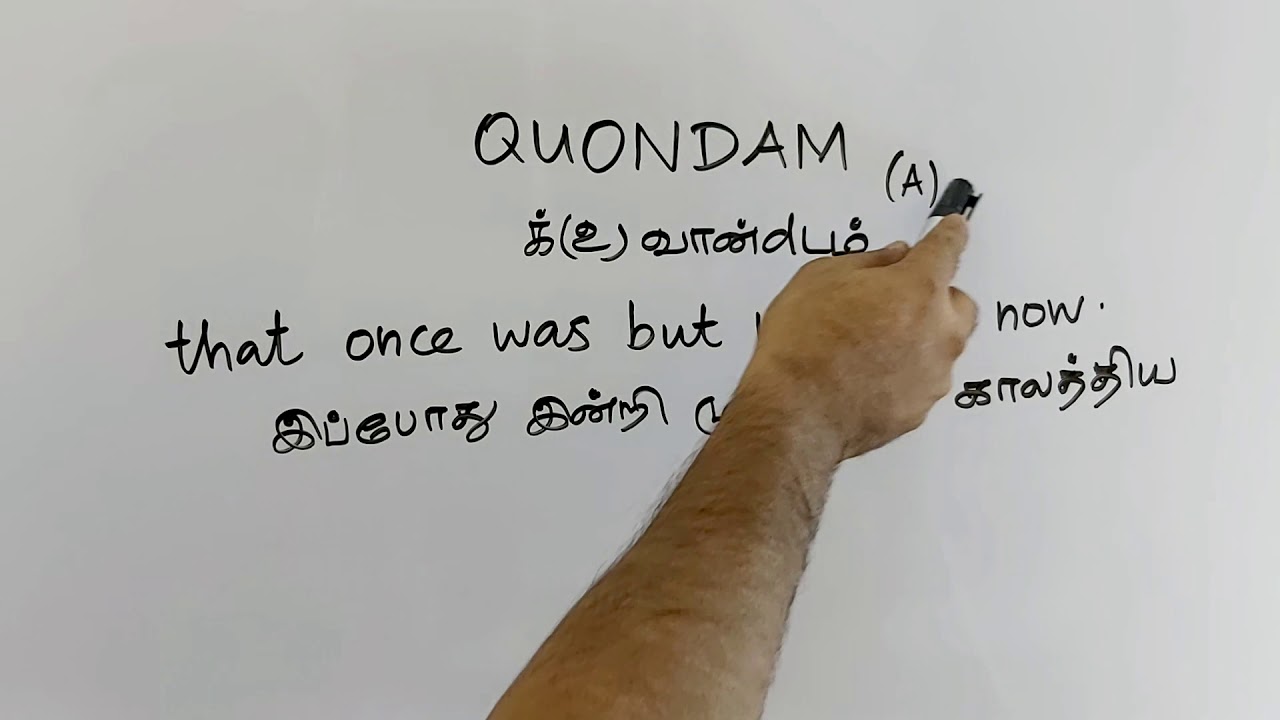 QUONDAM (A)
க்(உ) வான்dபம்
that once was but now.
இப்போது இன்றி காலத்திய